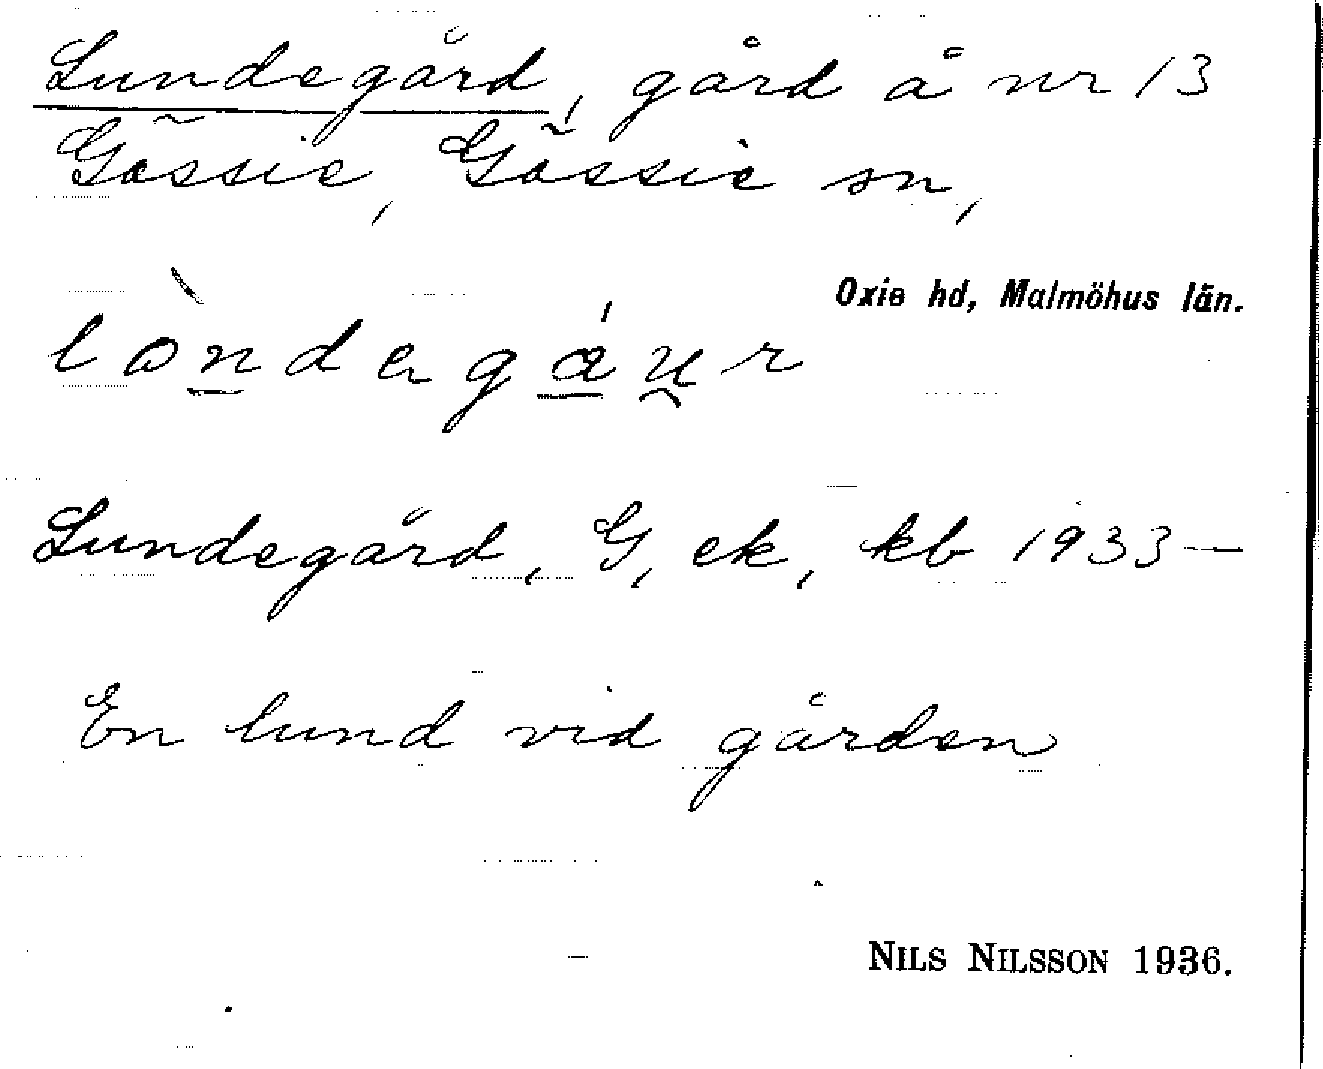 Lundegård, gård å nr 13
Gässie, Gässie sn,
Oxie hd, Malmöhus län.
lòndegáur
Lundegård, G, ek, kb 1933—
En lund vid gården
NILS NILSSON 1936.